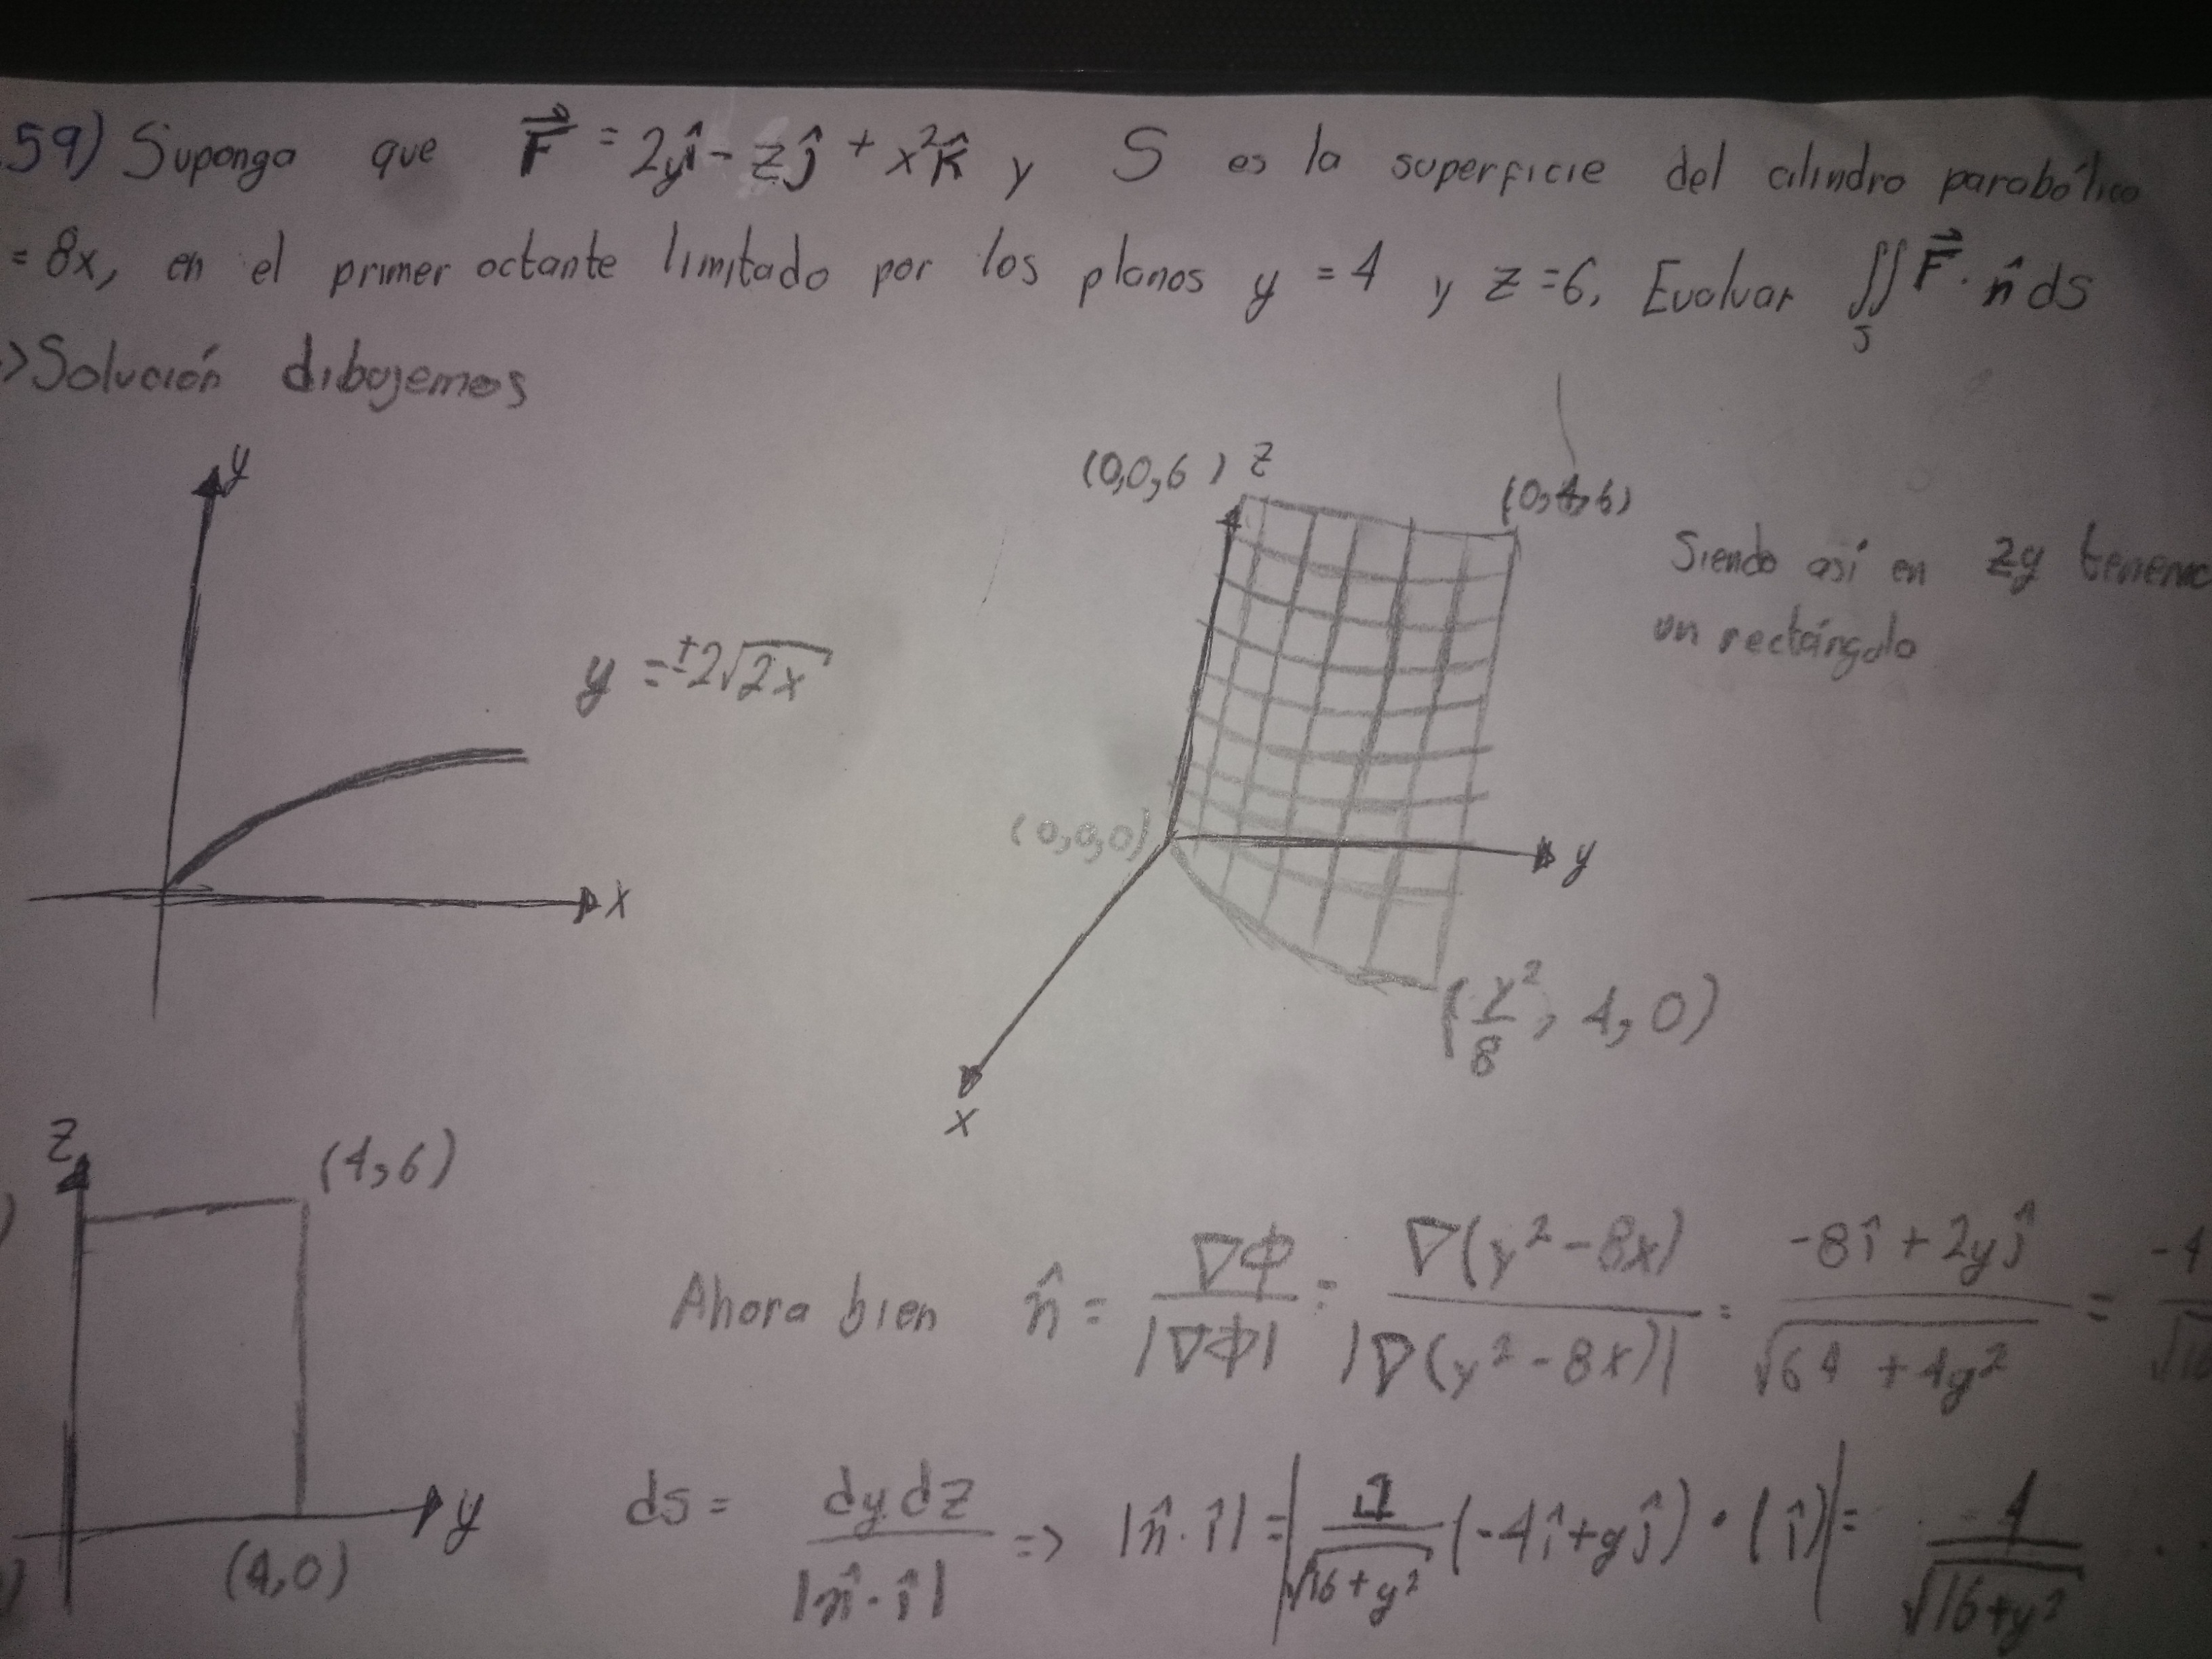 59) Suponga que F⃗ = 2yî - zĵ + x²k̂ y S es la superficie del cilindro parabólico
= 8x, en el primer octante limitado por los planos y = 4 y z = 6. Evaluar ∬_S F⃗ · n̂ ds
=> Solución dibujemos
y
x
y = ±2√2x
(0,0,6) z
(0,4,6)
(0,0,0)
y
x
(y²/8, 4, 0)
Siendo así en zy
un rectángulo
z
(4,6)
(4,0)
y
Ahora bien n̂ = ∇Φ/|∇Φ| = ∇(y²-8x)/|∇(y²-8x)| = (-8î + 2yĵ)/√(64 + 4y²) = -4
ds = dydz/|n̂·î| => |n̂·î| = |1/√(16+y²) (-4î+yĵ) · (î)| = 4/√(16+y²) ...